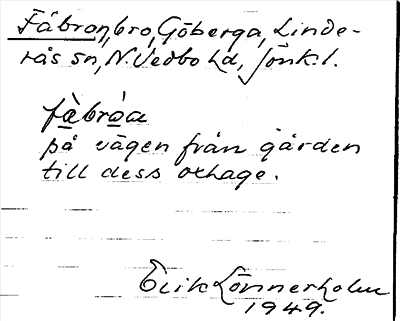 Fäbron, bro, Göberga, Linde-
rås sn, N. Vedbo hd, Jönk. l.
fä̀bròa
på vägen från gården
till dess oxhage.
Erik Lönnerholm
1949.